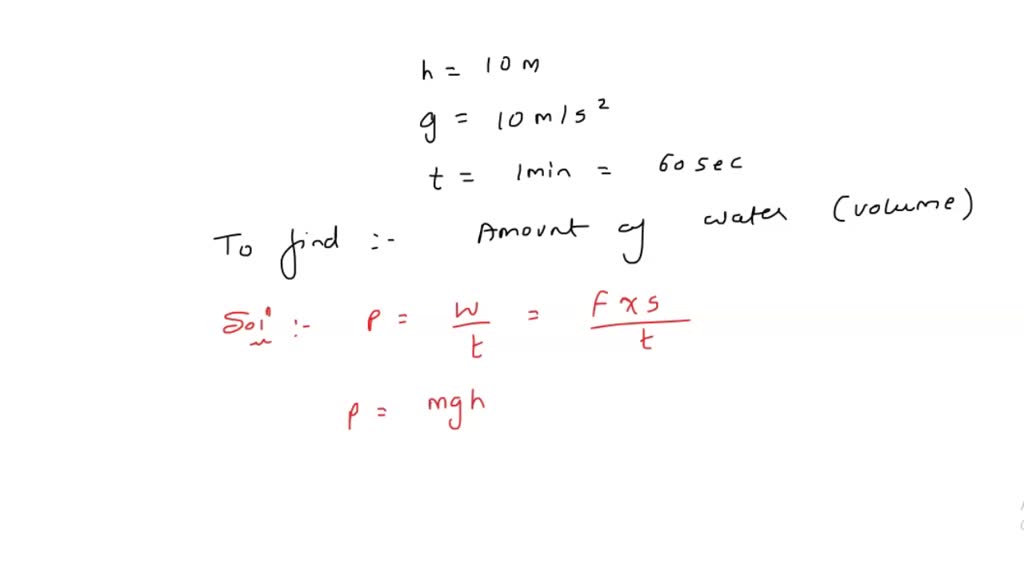 h = 10 m
g = 10 m/s²
t = 1min = 60 sec
To find :- Amount of water (volume)
Sol :- P = W/t = F x s/t
P = mgh